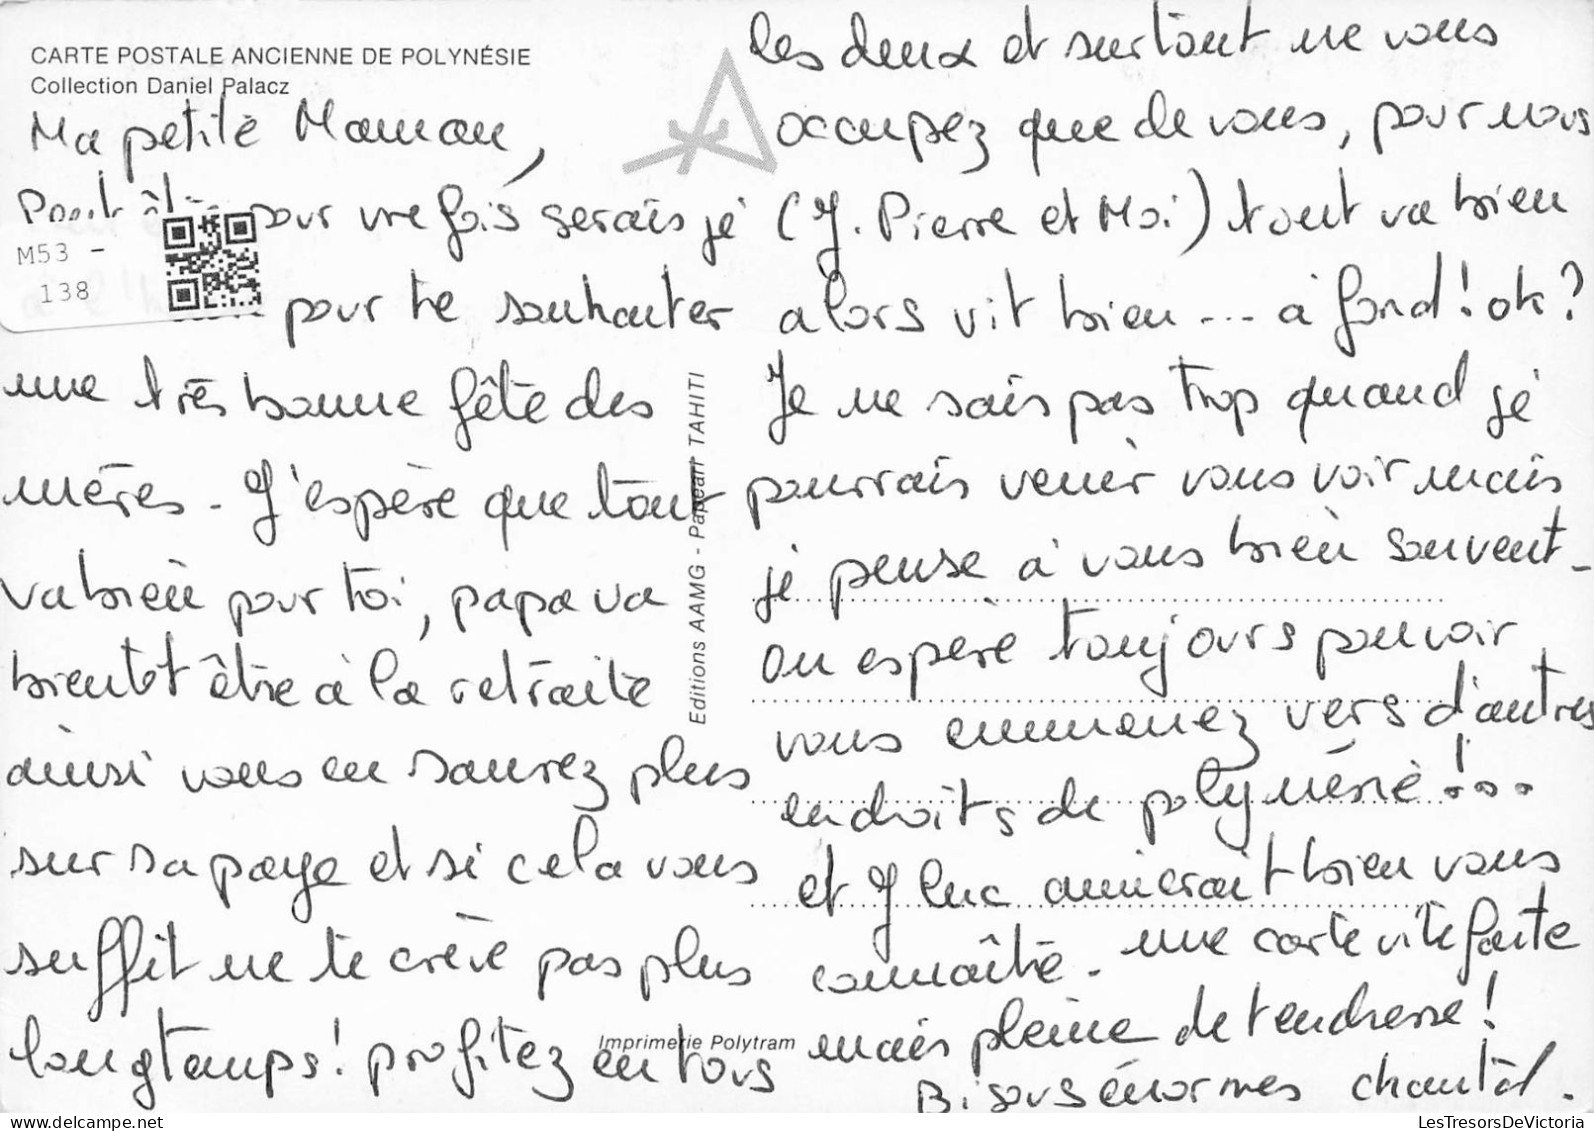 CARTE POSTALE ANCIENNE DE POLYNÉSIE
Collection Daniel Palacz
Ma petite Maman,
Peut être pour une fois serais je
pour te souhaiter
une très bonne fête des
mères - J'espère que tout
va bien pour toi, papa va
bientot être à la retraite
ainsi vous en saurez plus
sur sa paye et si cela vous
suffit ne te crève pas plus
longtamps! profitez en tous
les deux et surtout ne vous
occupez que de vous, pour nous
(J. Pierre et Moi) tout va bien
alors vit bien --- à fond! ok?
Je ne sais pas trop quand je
pourrais venir vous voir mais
je pense à vous bien souvent -
on espère toujours pouvoir
vous emmenez vers d'autres
endroits de polynésie!...
et J Luc aimerait bien vous
connaître - une carte vite faite
mais pleine de tendresse!
Bisous énormes chantal.
M53 -
138
Editions AAMG - Papeari TAHITI
Imprimerie Polytram
LesTresorsDeVictoria